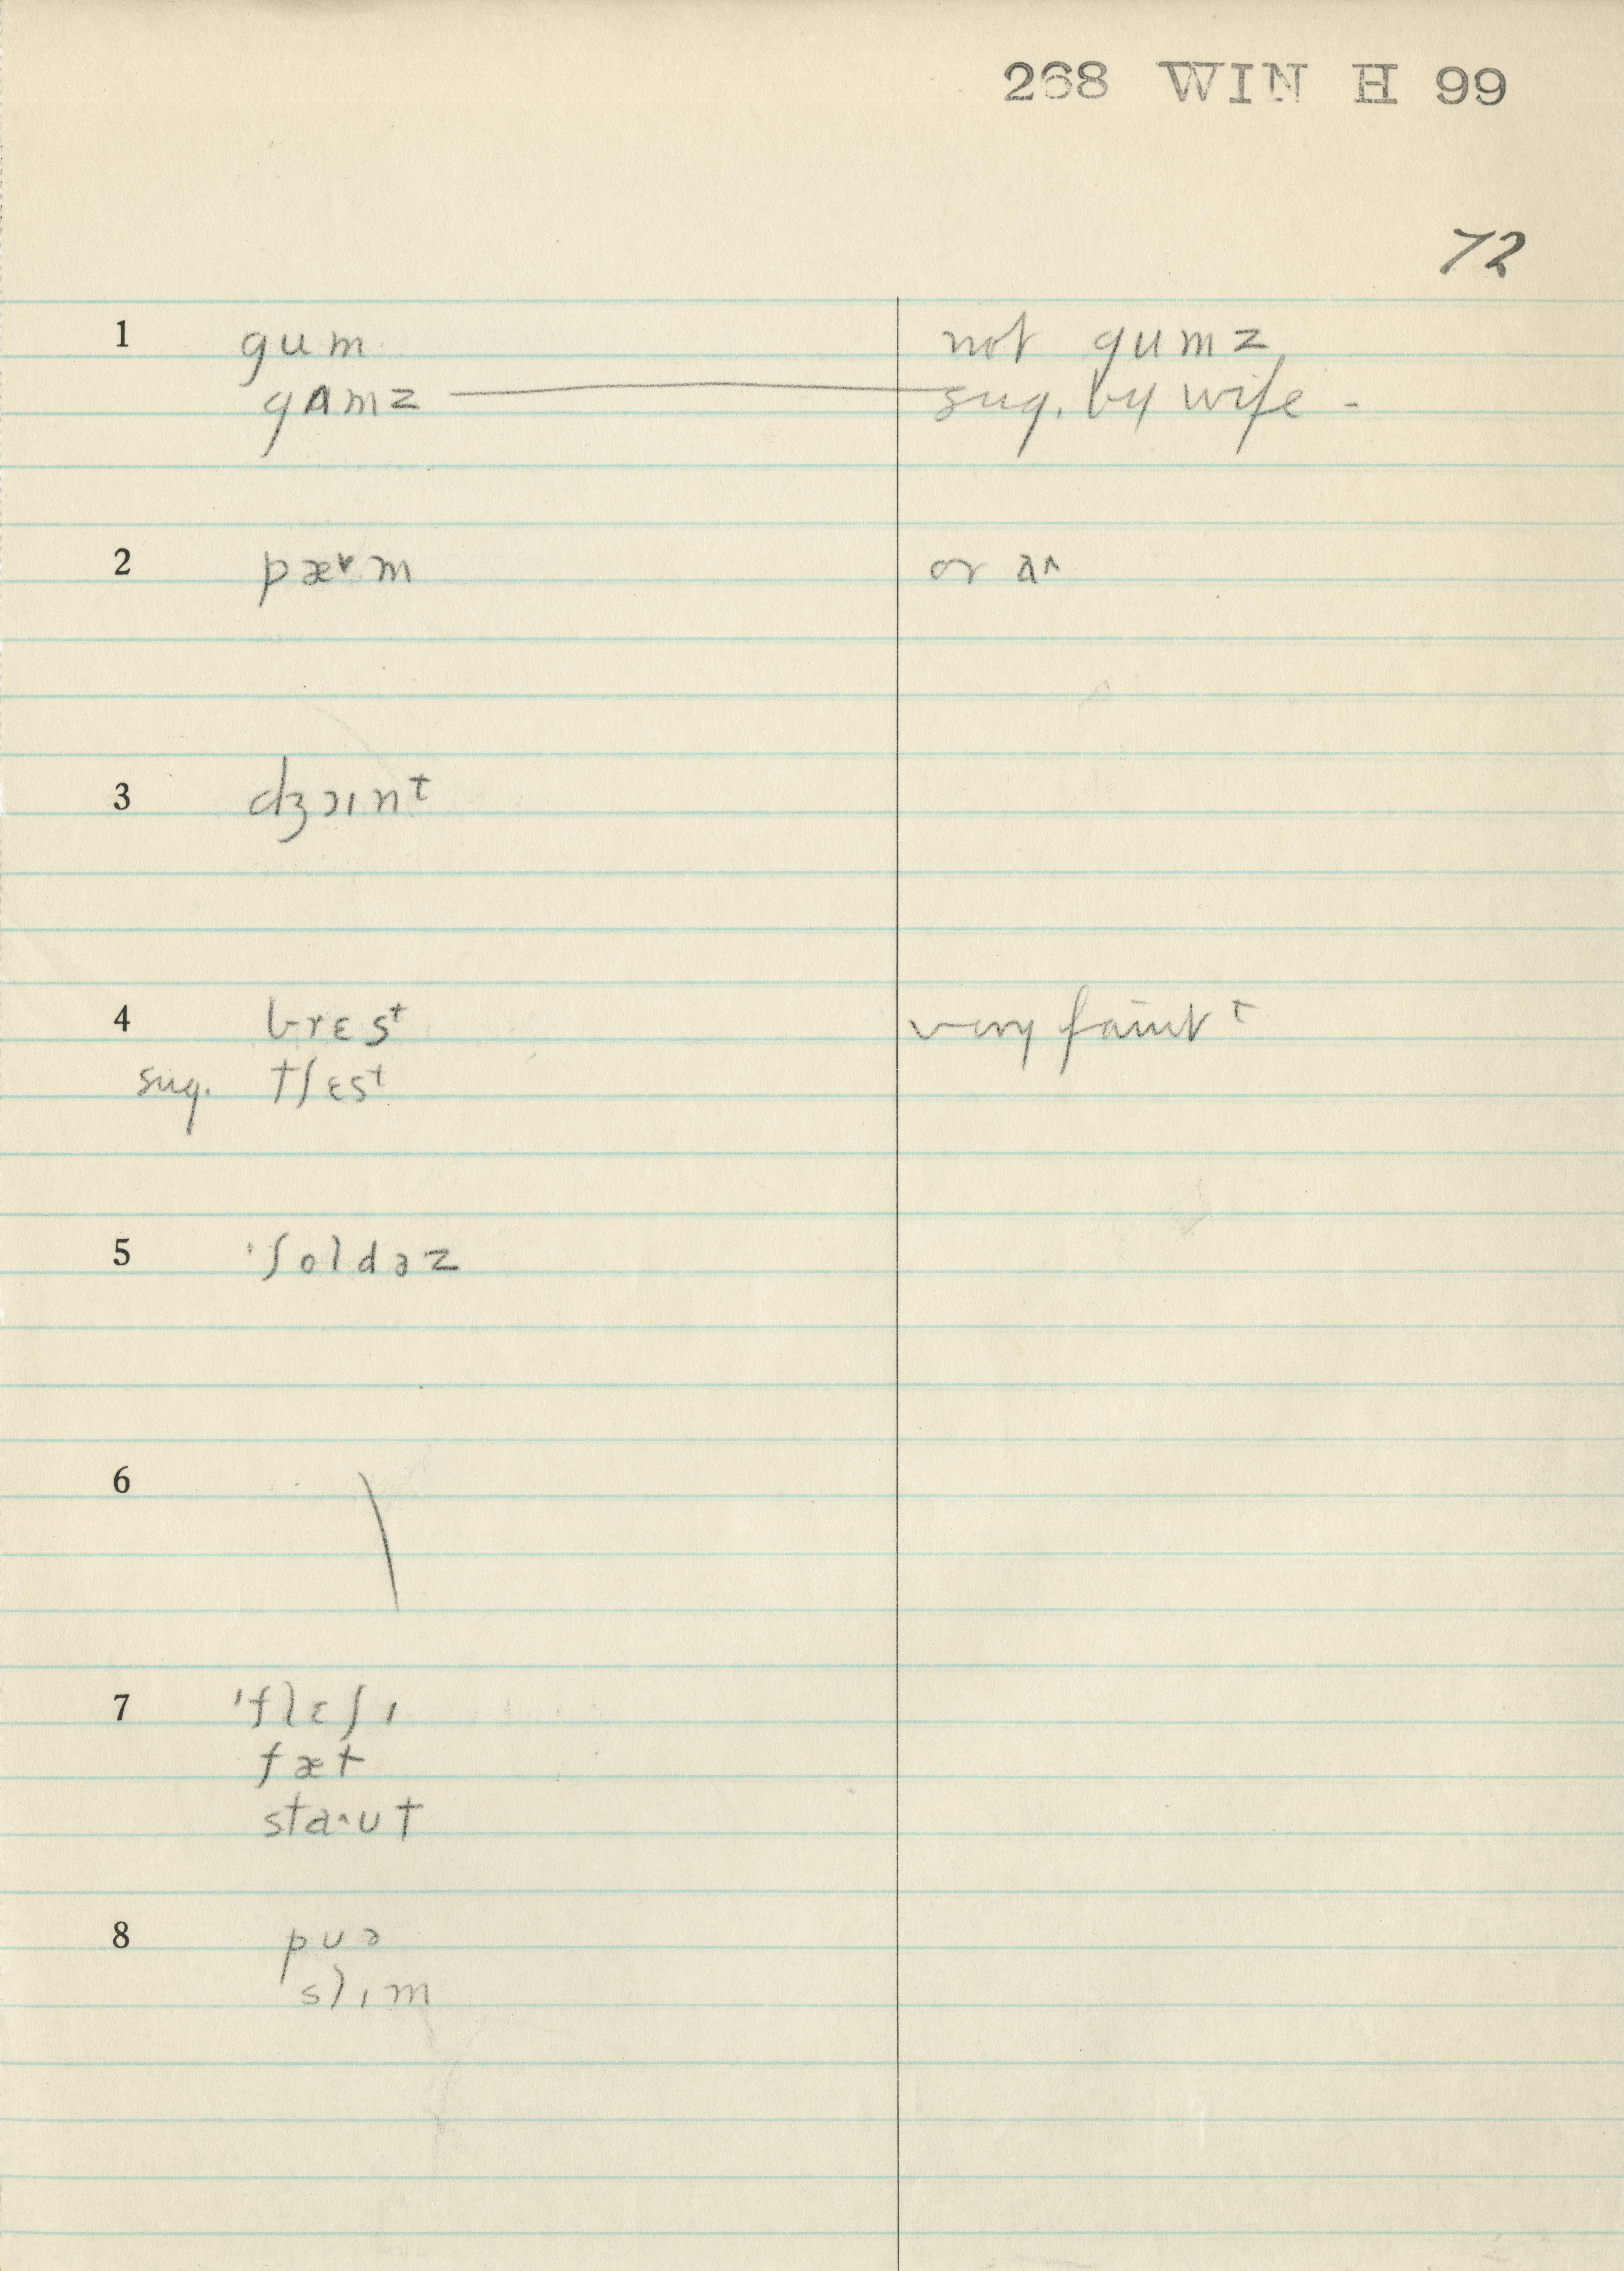 268 WIN H 99
72
1 gum not gumz
gʌmz sug. by wife -
2 pæ˅m or a˄
3 dʒɔɪnᵗ
4 brɛsᵗ very faint t
sug. tʃɛsᵗ
5 ˈʃoldəz
6 \
7 ˈflɛʃɪ
fæt
sta˄ut
8 puə
slɪm